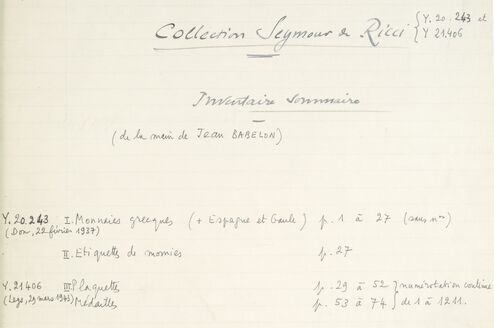 Collection Seymour de Ricci { Y. 20.243 et
Y 21.406
Inventaire sommaire
(de la main de Jean BABELON)
Y. 20.243 I. Monnaies grecques (+ Espagne et Gaule) p. 1 à 27 (sans nos)
(Don, 22 février 1937)
II. Etiquettes de momies p. 27
Y. 21406 III. Plaquettes p. 29 à 52 } numérotation continue
(Legs, 29 mars 1943) Médailles p. 53 à 74 } de 1 à 1211.